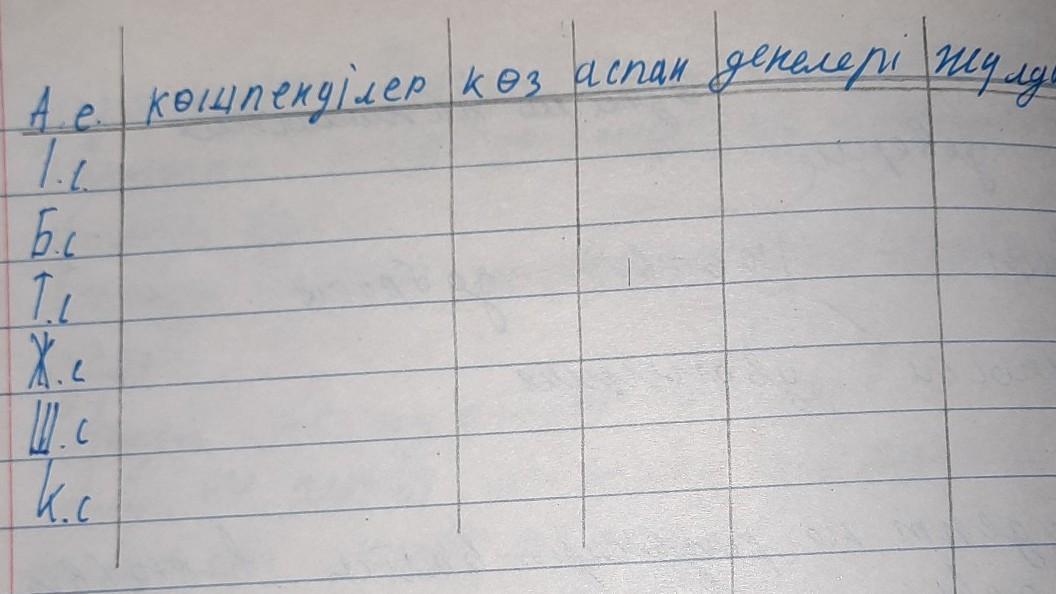 А.е. көшпенділер көз аспан денелері
І.с.
Б.с
Т.с
Ж.с
Ш.с
К.с